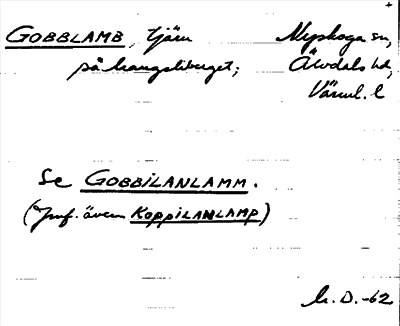 GOBBLAMB, tjärn Nyskoga sn,
på Arangsberget; Älvdals hd,
Värml. l
Se GOBBILANLAMM.
(Jmf. även KOPPILANLAMP)
M. D. -62